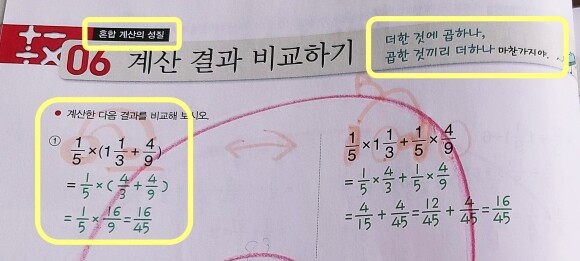 혼합 계산의 성질
06 계산 결과 비교하기
더한 것에 곱하나,
곱한 것끼리 더하나 마찬가지야.
● 계산한 다음 결과를 비교해 보시오.
① 1/5 × (1 1/3 + 4/9)
= 1/5 × (4/3 + 4/9)
= 1/5 × 16/9 = 16/45
1/5 × 1 1/3 + 1/5 × 4/9
= 1/5 × 4/3 + 1/5 × 4/9
= 4/15 + 4/45 = 12/45 + 4/45 = 16/45